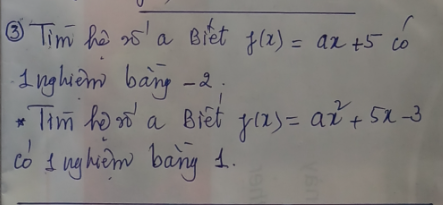 ③ Tìm hệ số a Biết f(x) = ax + 5 có
1 nghiệm bằng -2.
* Tìm hệ số a Biết f(x) = ax² + 5x - 3
có 1 nghiệm bằng 1.